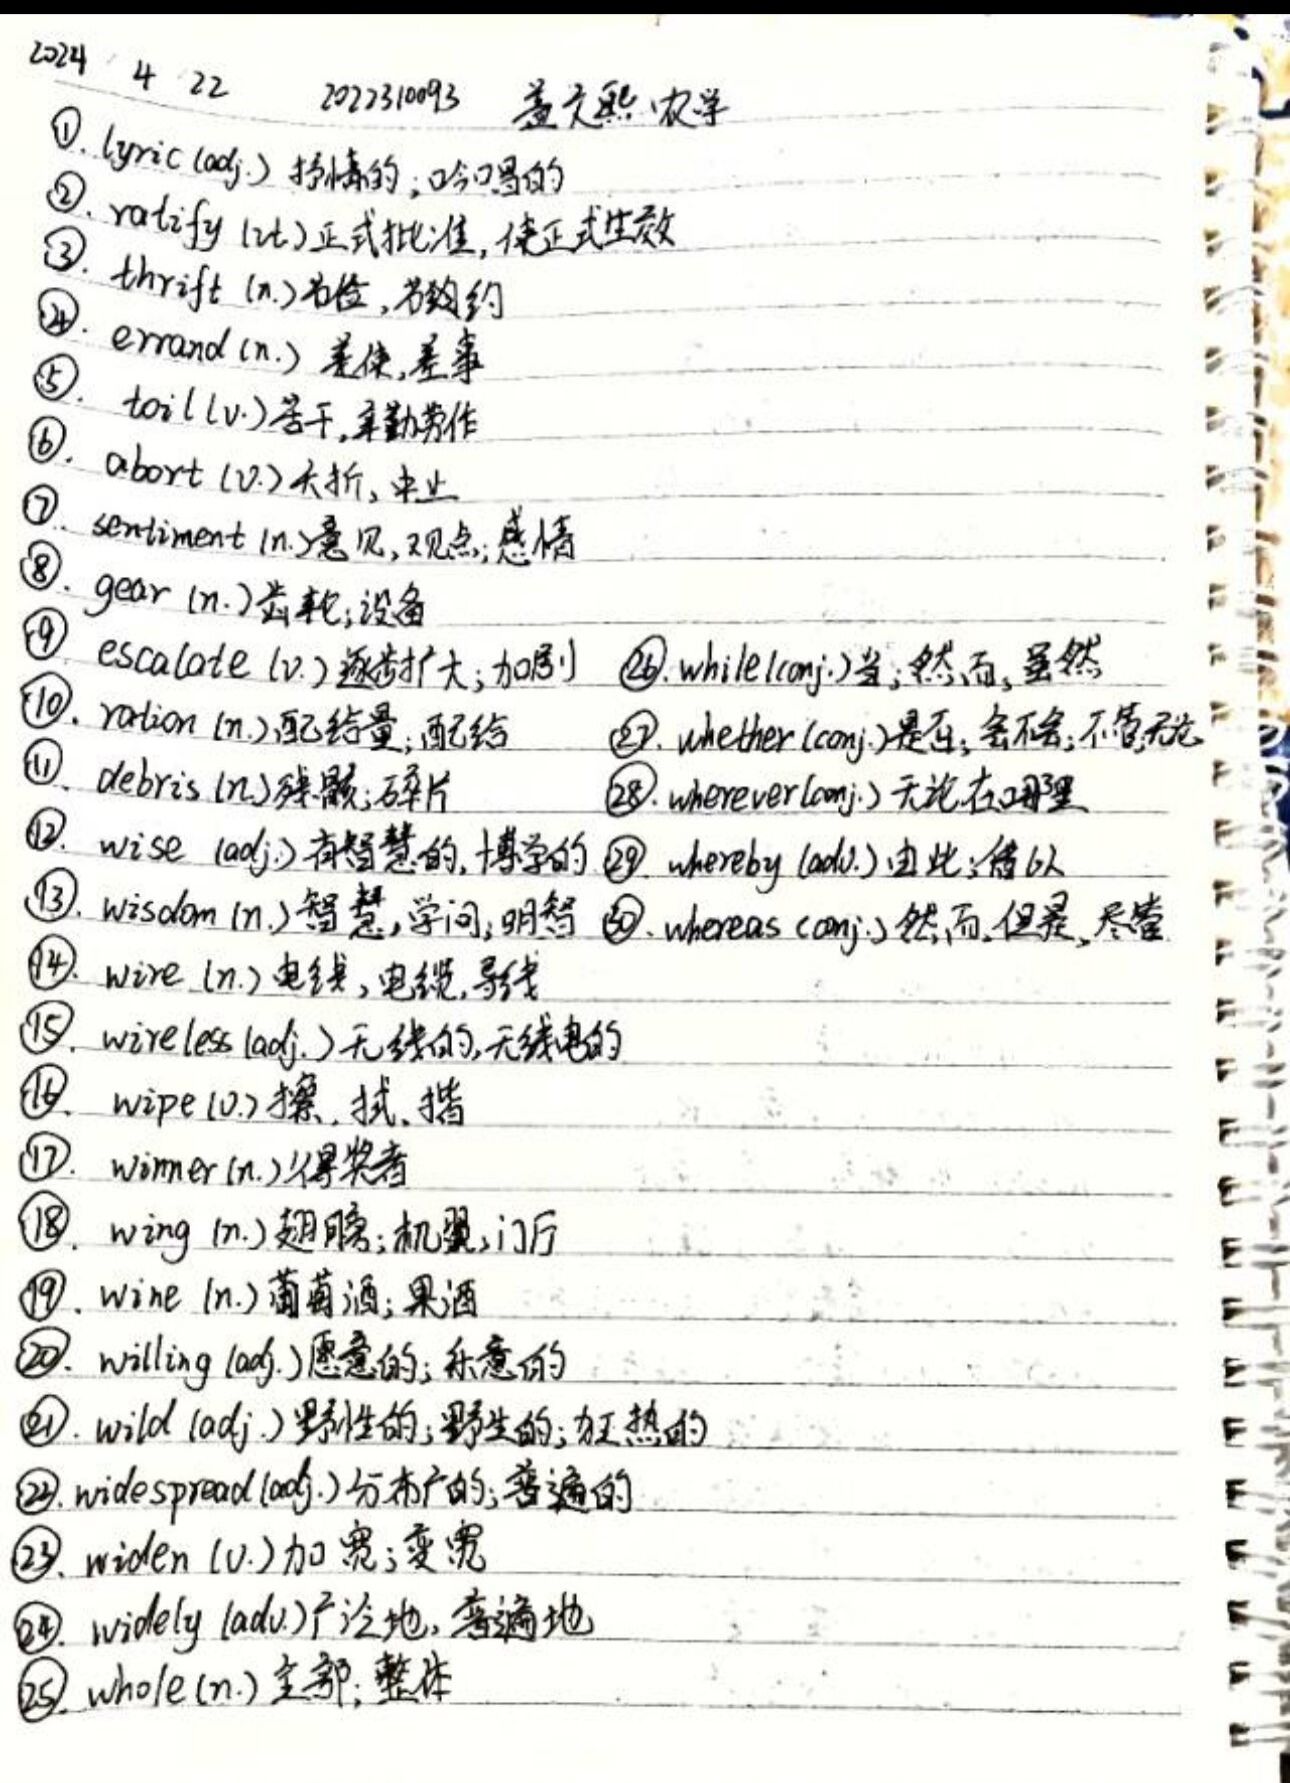 2024 4 22 2022310093 盖文熙 农学
①. lyric (adj.) 抒情的;吟唱的
②. ratify (vt.) 正式批准,使正式生效
③. thrift (n.) 节俭,节约
④. errand (n.) 差使,差事
⑤. toil (v.) 苦干,辛勤劳作
⑥. abort (v.) 夭折,中止
⑦. sentiment (n.) 意见,观点;感情
⑧. gear (n.) 齿轮;设备
⑨ escalate (v.) 逐步扩大;加剧
⑩. ration (n.) 配给量;配给
⑪. debris (n.) 残骸;碎片
⑫. wise (adj.) 有智慧的,博学的
⑬. wisdom (n.) 智慧,学问;明智
⑭. wire (n.) 电线,电缆,导线
⑮. wireless (adj.) 无线的,无线电的
⑯. wipe (v.) 擦、拭、揩
⑰. winner (n.) 得奖者
⑱. wing (n.) 翅膀;机翼;门厅
⑲. wine (n.) 葡萄酒;果酒
⑳. willing (adj.) 愿意的;乐意的
㉑. wild (adj.) 野性的;野生的;狂热的
㉒. widespread (adj.) 分布广的;普遍的
㉓. widen (v.) 加宽;变宽
㉔. widely (adv.) 广泛地,普遍地
㉕. whole (n.) 全部;整体
㉖. while (conj.) 当;然而,虽然
㉗. whether (conj.) 是否;会不会;不管,无论
㉘. wherever (conj.) 无论在哪里
㉙. whereby (adv.) 由此;借以
㉚. whereas (conj.) 然而,但是,尽管